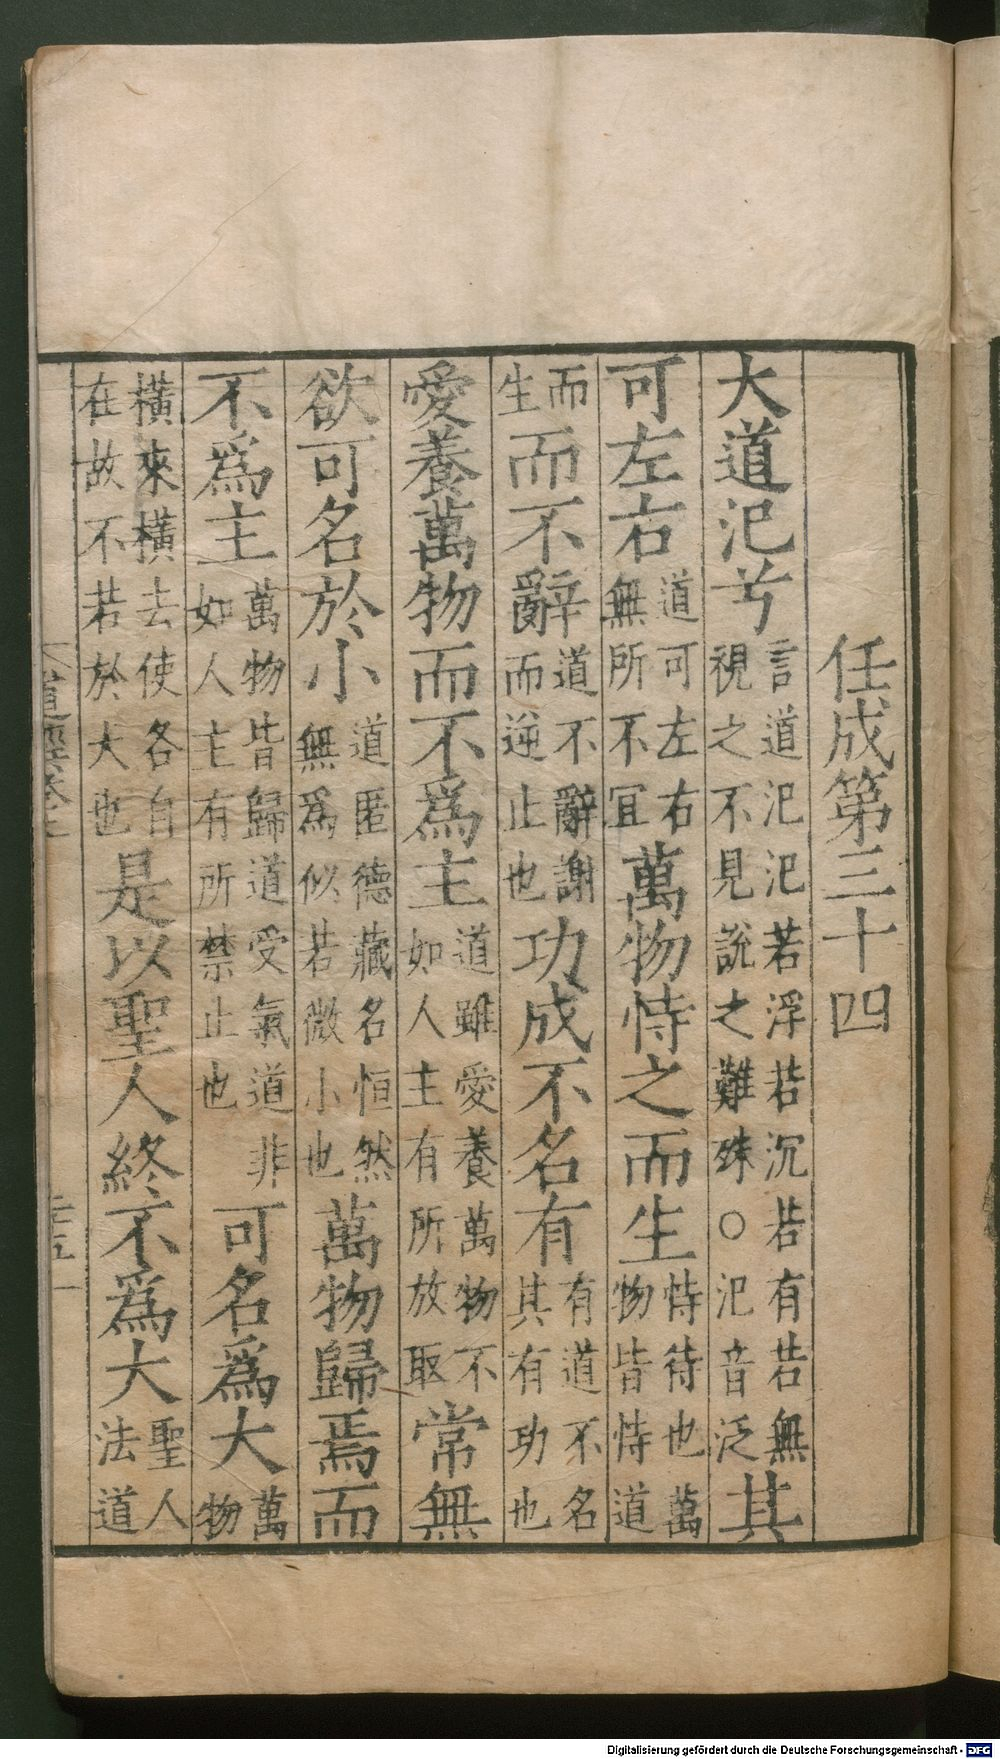 任成第三十四
大道汜兮言道汜汜若浮若沉若有若無視之不見說之難殊○汜音泛其
可左右道可左右無所不宜萬物恃之而生恃待也萬物皆恃道
而生而不辭道不辭謝而逆止也功成不名有有道不名其有功也
愛養萬物而不爲主道雖愛養萬物不如人主有所放取常無
欲可名於小道匿德藏名恒然無爲似若微小也萬物歸焉而
不爲主萬物皆歸道受氣道非如人主有所禁止也可名爲大萬物
橫來橫去使各自在故不若於大也是以聖人終不爲大聖人法道
道經卷上
三十五
Digitalisierung gefördert durch die Deutsche Forschungsgemeinschaft - DFG